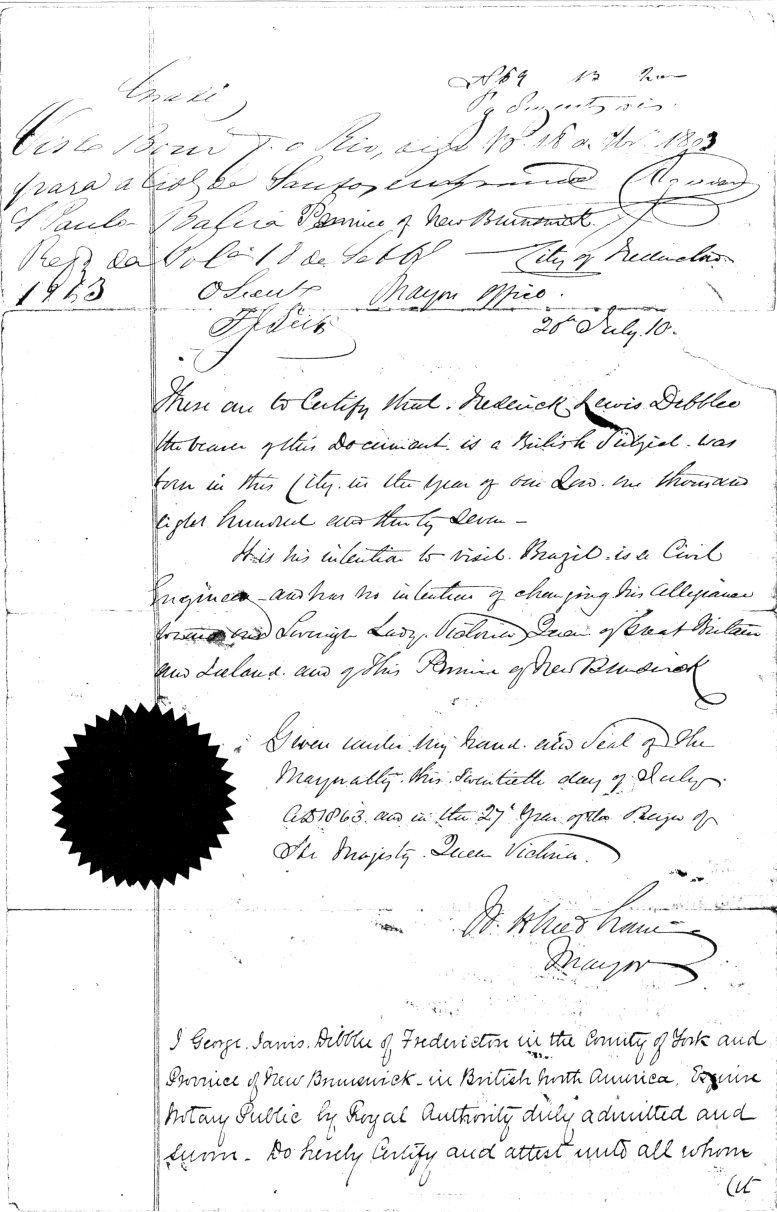 Nº 69
Visto Bom p. o Rio, 18 1863
para a de Santos
S Paulo Bahia Province of New Brunswick
de Pola 18 de City of Fredericton
1863 Mayors Office
20th July 18
These are to Certify that Frederick Lewis Dibblee
the bearer of this Document is a British Subject was
born in this City in the year of our Lord one thousand
eight hundred and thirty seven –
It is his intention to visit Brazil is a Civil
Engineer and has no intention of changing his allegiance
toward our Sovereign Lady Victoria Queen of Great Britain
and Ireland and of this Province of New Brunswick
Given under my hand and Seal of the
Mayoralty this twentieth day of July
AD 1863 and in the 27th Year of the Reign of
Her Majesty Queen Victoria
Mayor
I George Jarvis Dibblee of Fredericton in the County of York and
Province of New Brunswick in British North America, Esquire
Notary Public by Royal Authority duly admitted and
sworn – Do hereby Certify and attest unto all whom
(it